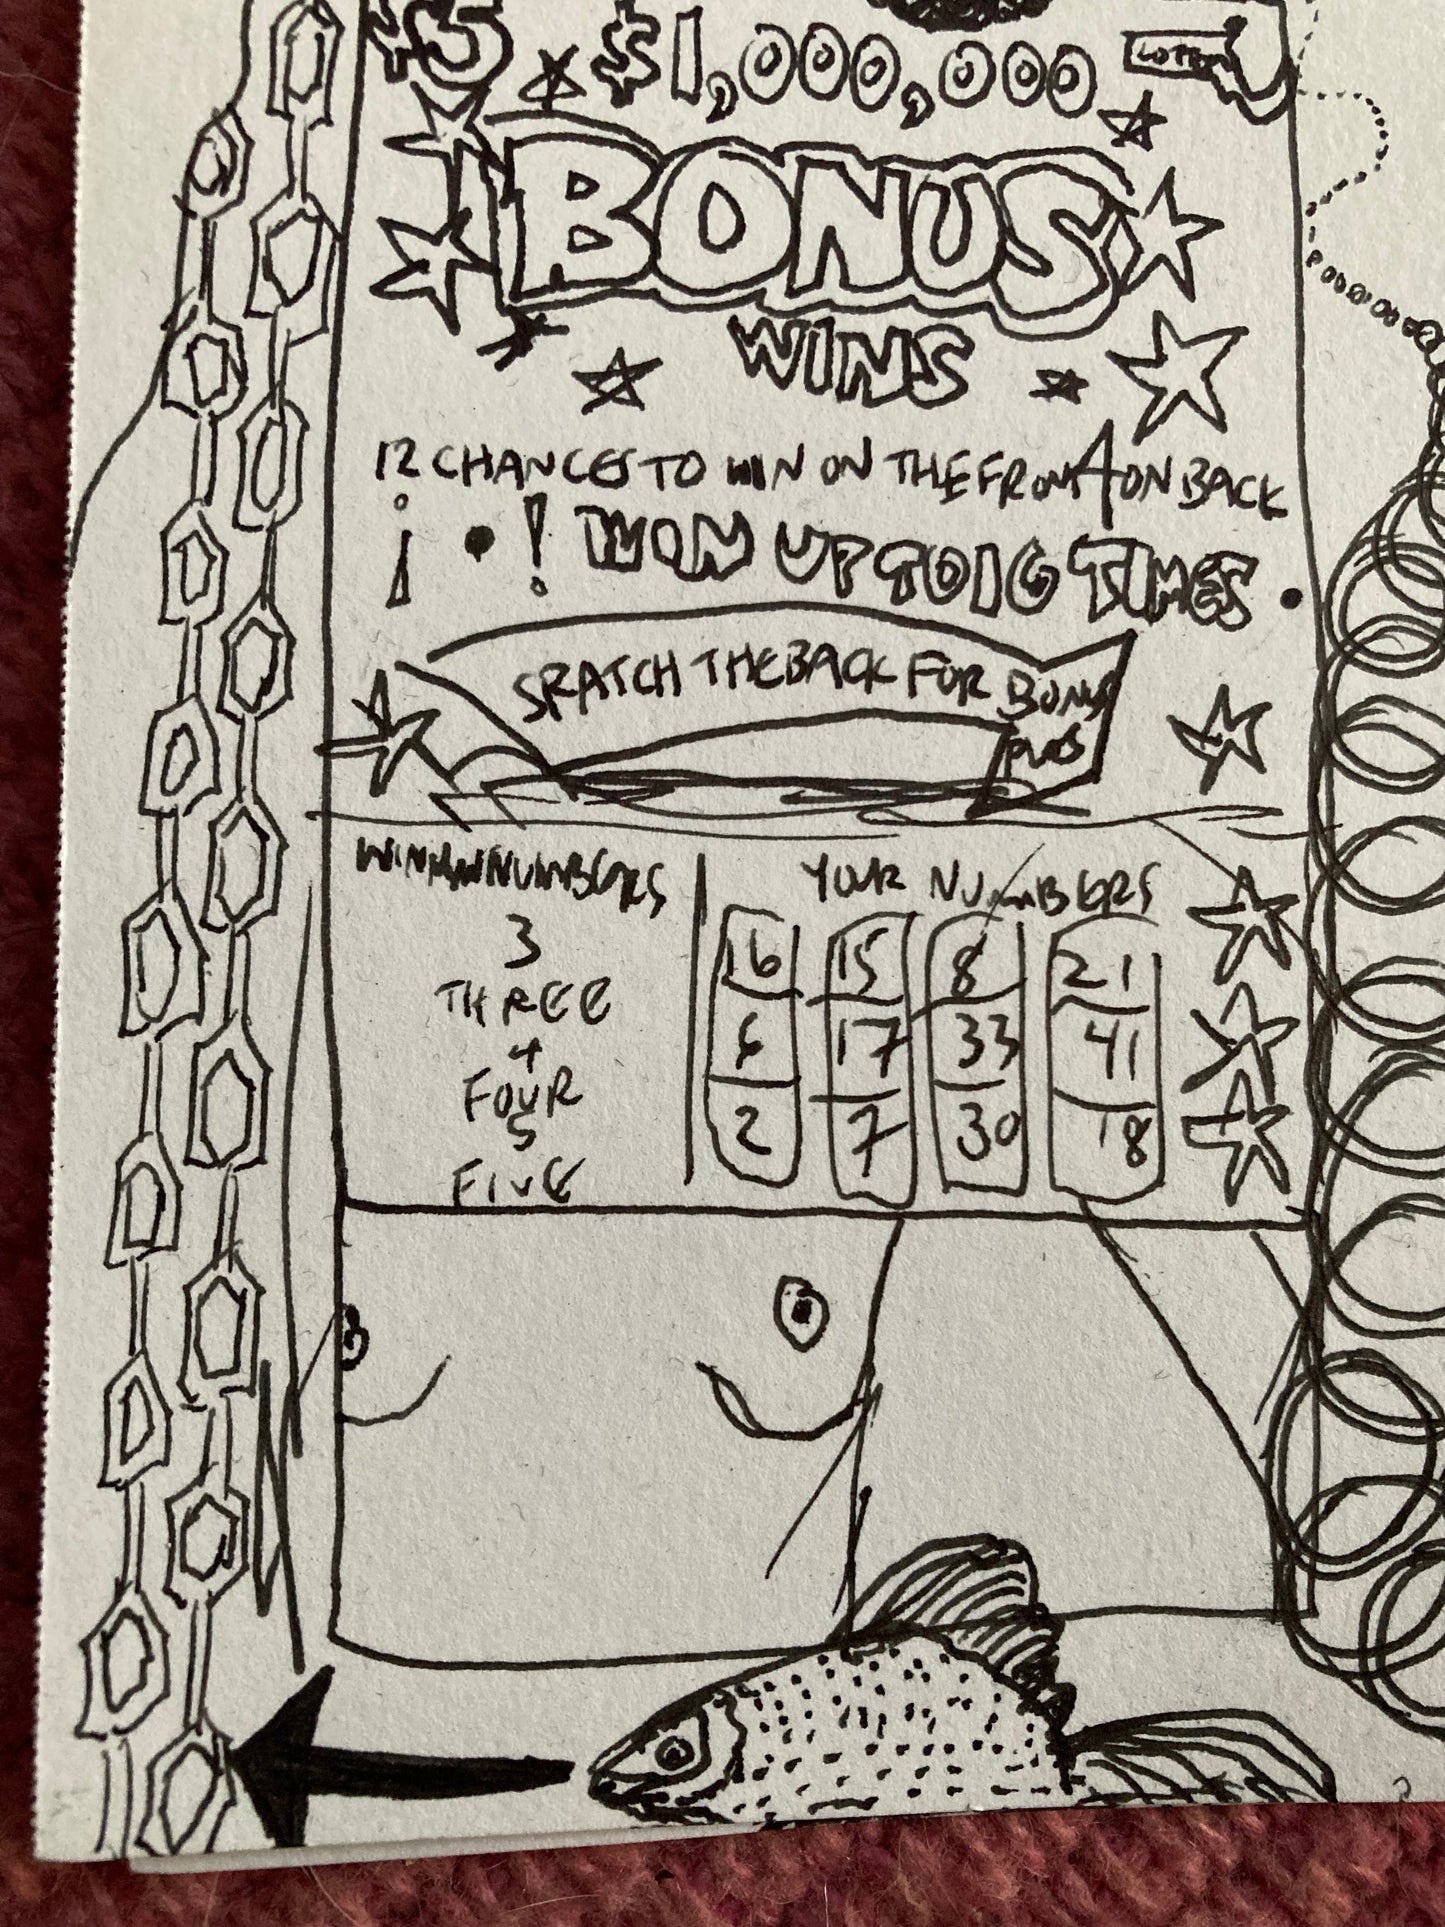 $5 $1,000,000 LOTTERY
BONUS
WINS
12 CHANCES TO WIN ON THE FRONT 4 ON BACK
¡ ! WIN UP TO 16 TIMES
SRATCH THE BACK FOR BONUS
WINNINNUMBERS
YOUR NUMBERS
3
THREE
4
FOUR
5
FIVE
16 15 8 21
6 17 33 41
2 7 30 18